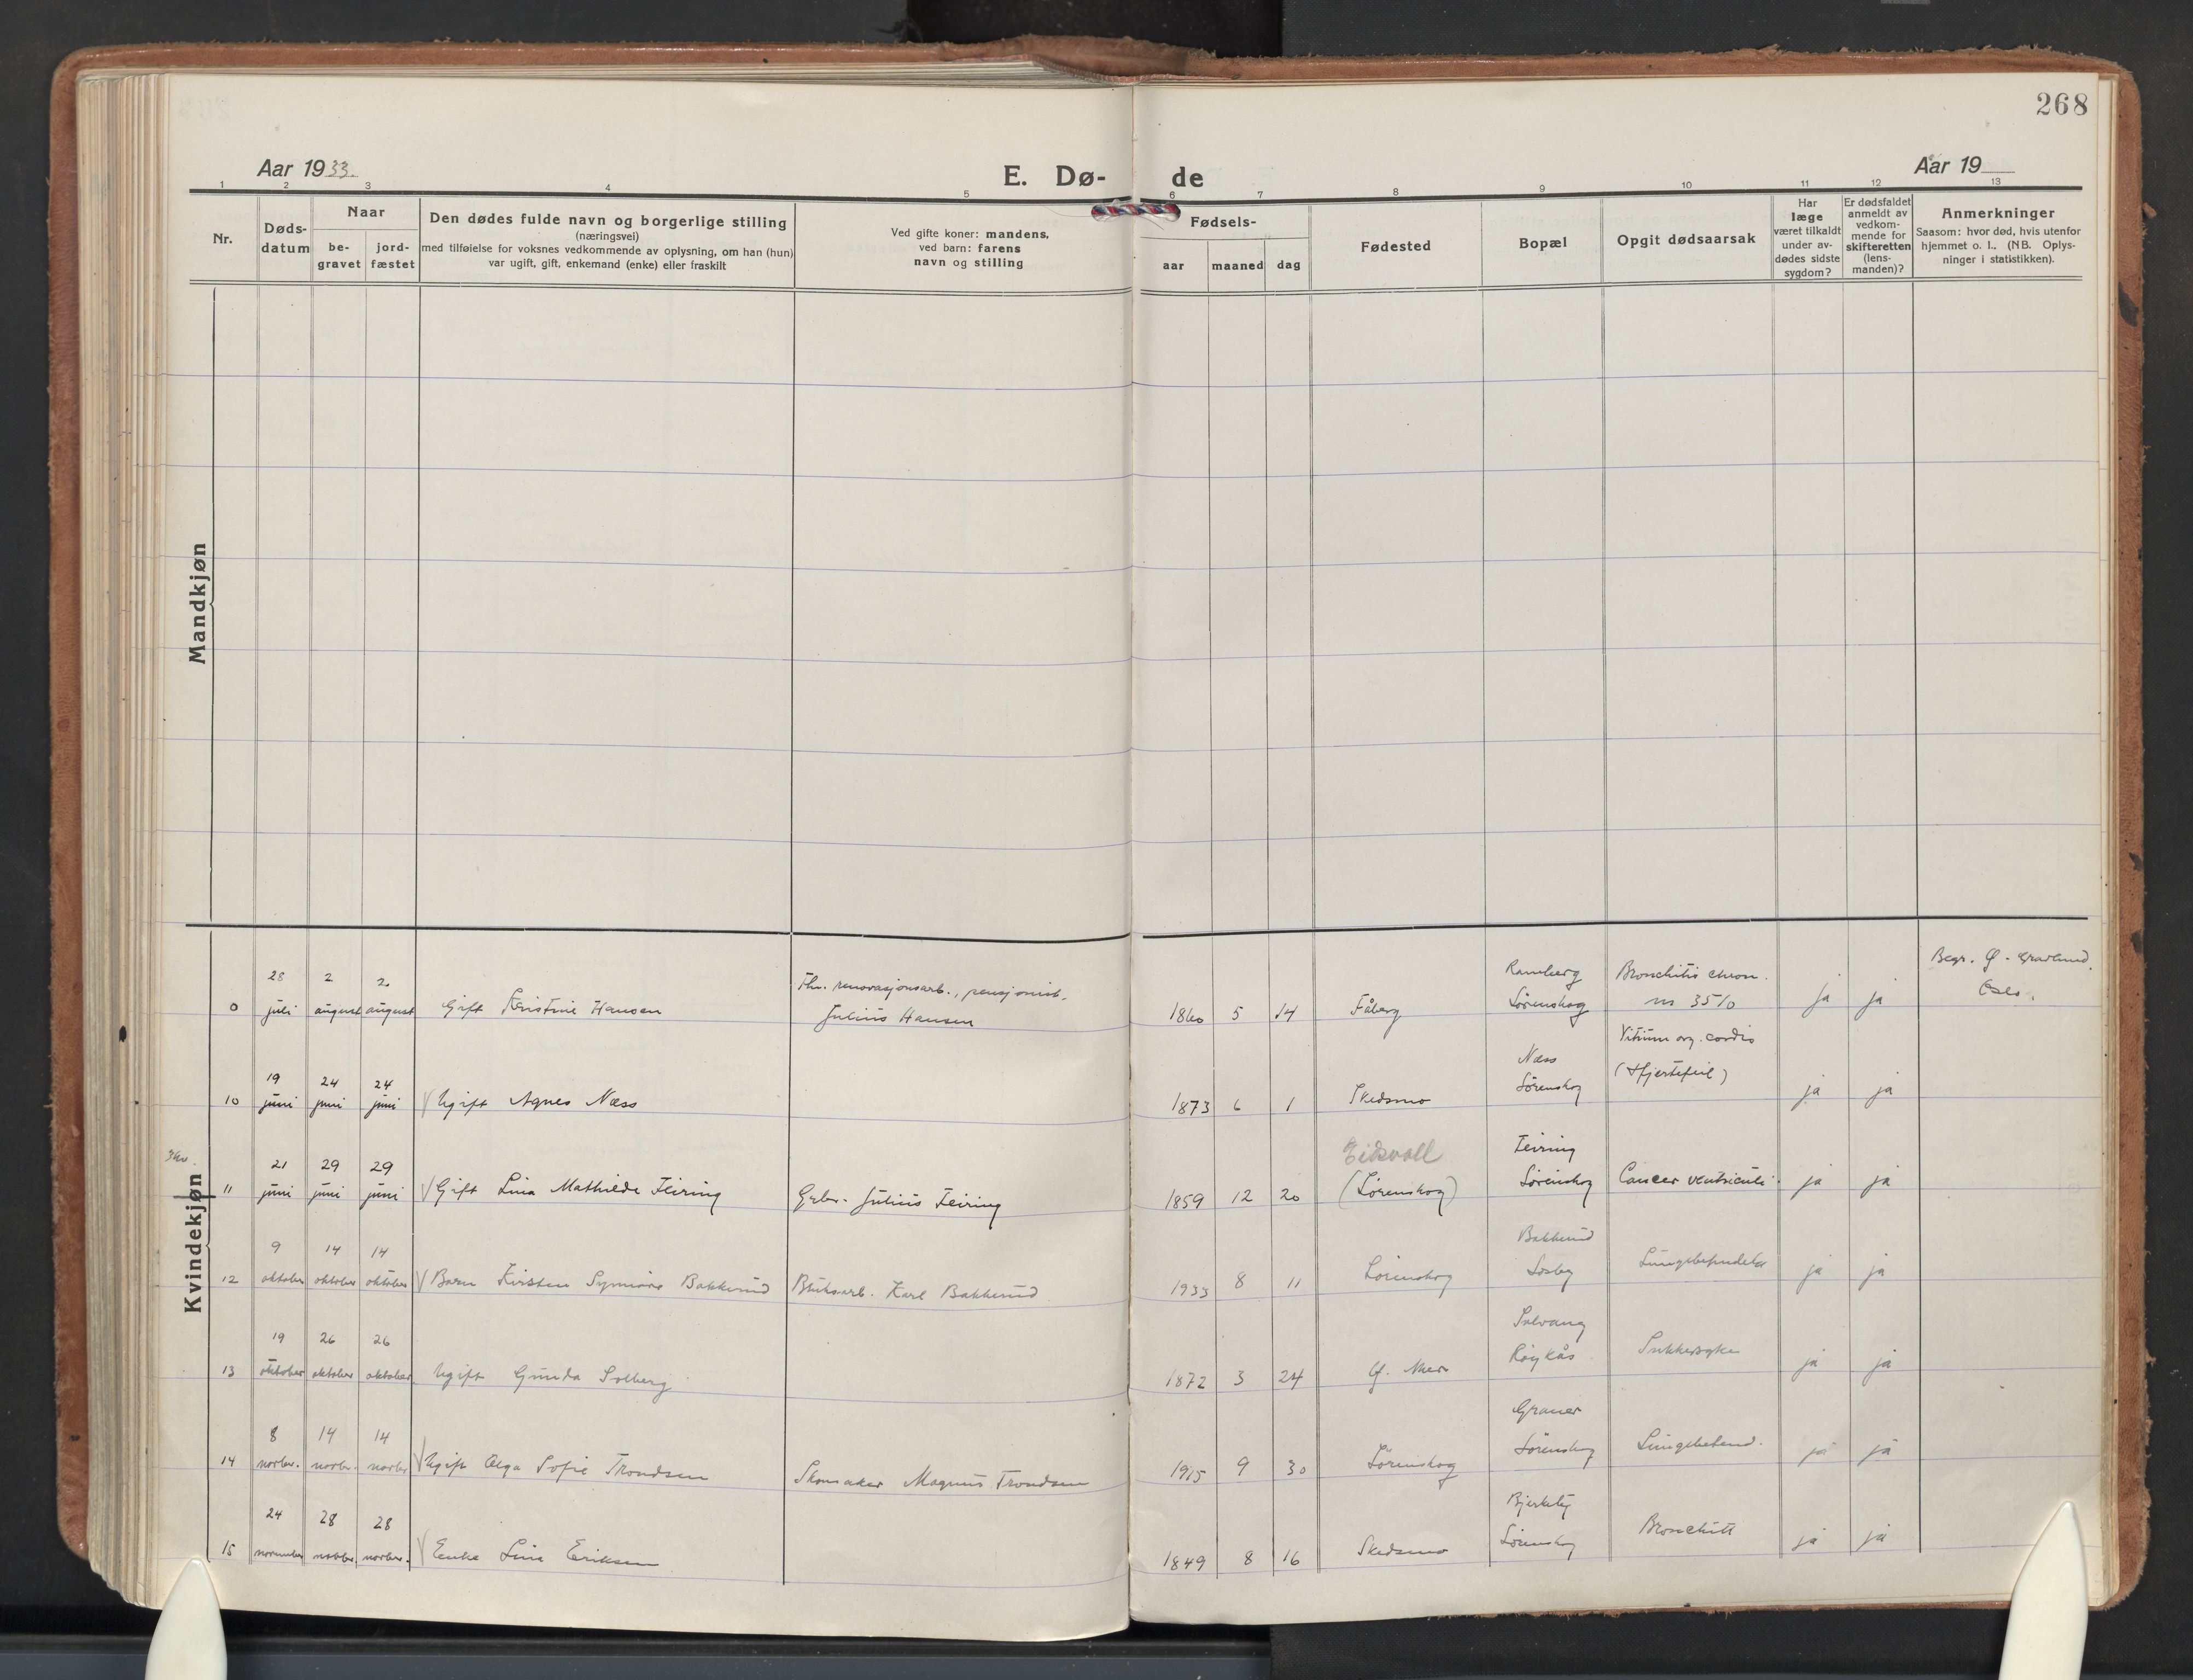 268
Aar 1933.
E. Dø-
de
Aar 19
1 2 3 4 5 6 7 8 9 10 11 12 13
Nr.
Døds-
datum
Naar
be-
gravet
jord-
fæstet
Den dødes fulde navn og borgerlige stilling
(næringsvei)
med tilføielse for voksnes vedkommende av oplysning, om han (hun)
var ugift, gift, enkemand (enke) eller fraskilt
Ved gifte koner: mandens,
ved barn: farens
navn og stilling
Fødsels-
aar maaned dag
Fødested
Bopæl
Opgit dødsaarsak
Har
læge
været tilkaldt
under av-
dødes sidste
sygdom?
Er dødsfaldet
anmeldt av
vedkom-
mende for
skifteretten
(lens-
manden)?
Anmerkninger
Saasom: hvor død, hvis utenfor
hjemmet o. l., (NB. Oplys-
ninger i statistikken).
Mandkjøn
Kvindekjøn
28 2 2
juli august august
0 Gift Kristine Hansen
Fhv. renovasjonsarb., pensjonist.
Julius Hansen
1860 5 14 Fåberg
Ramberg
Lørenskog
Bronchitis chron.
m 3510
ja ja
Begr. Ø. Gravlund,
Oslo.
19 24 24
10 juni juni juni Ugift Agnes Næss
1873 6 1 Skedsmo
Næss
Lørenskog
Vitium org. cordis
(Hjertefeil)
ja ja
21 29 29
11 juni juni juni Gift Lina Mathilde Feiring
Grbr. Julius Feiring
1859 12 20
Eidsvoll
(Lørenskog)
Feiring
Lørenskog
Cancer ventriculi.
ja ja
9 14 14
12 oktober oktober oktober Barn Kirsten Synnøve Bakkerud
Bruksarb. Karl Bakkerud
1933 8 11 Lørenskog
Bakkerud
Losby
Lungebetendelse
ja ja
19 26 26
13 oktober oktober oktober Ugift Gunda Solberg
1872 3 24
Solvang
Røykås
Sukkersyke
ja ja
8 14 14
14 novbr. novbr. novbr Ugift Olga Sofie Trondsen
Skomaker Magnus Trondsen
1915 9 30 Lørenskog
Graner
Lørenskog
Lungebetend.
ja ja
24 28 28
15 november novbr. novbr. Enke Lina Eriksen
1849 8 16 Skedsmo
Bjerkely
Lørenskog
Bronchitt
ja ja